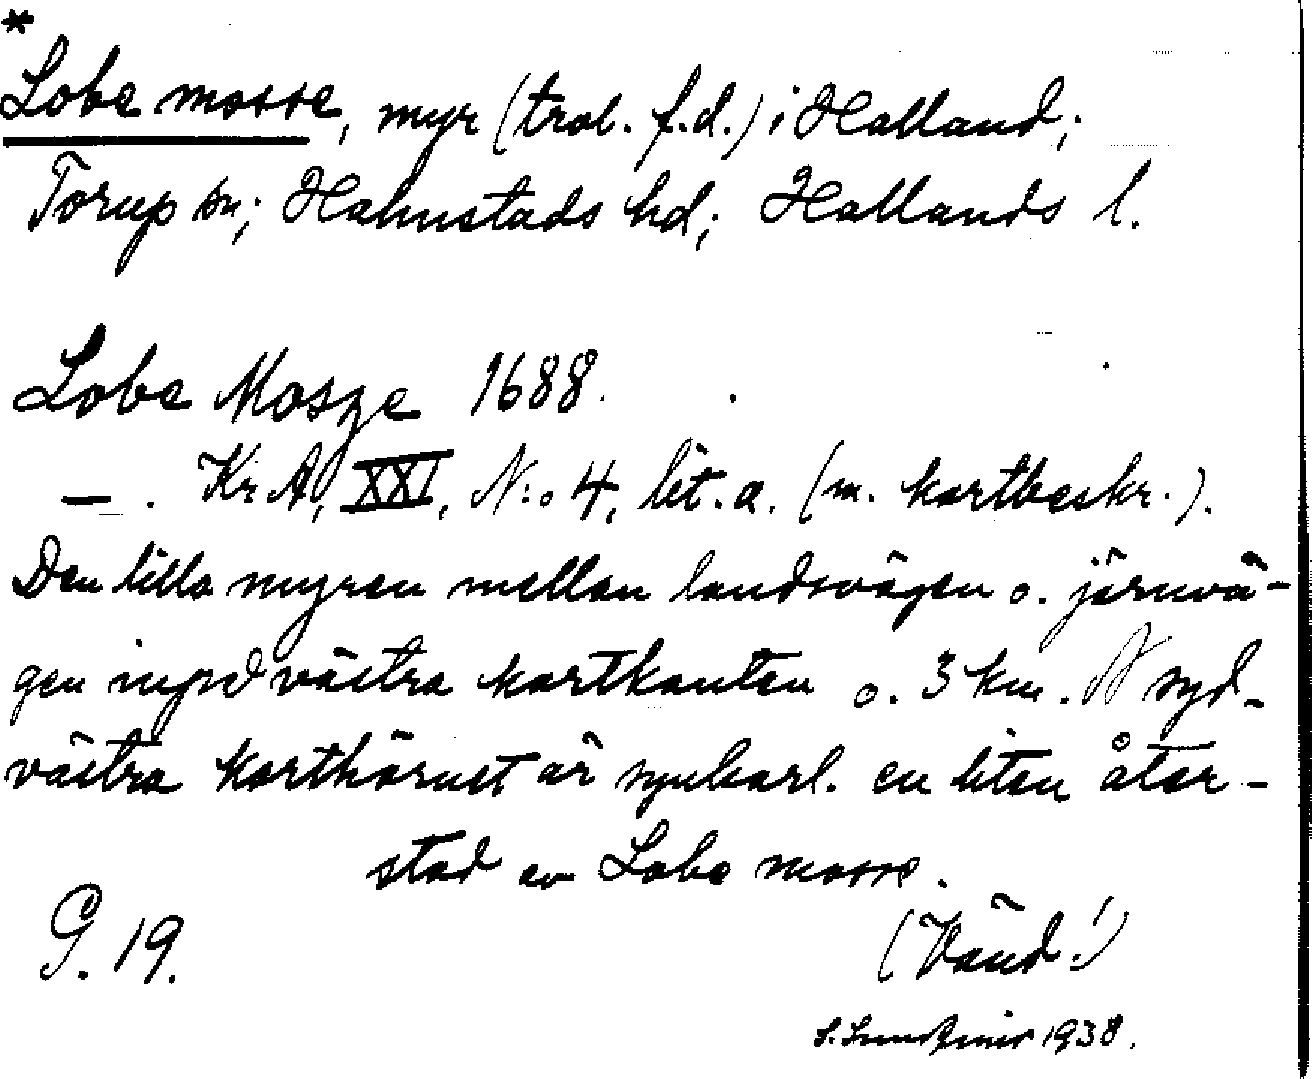 *
Lobe mosse, myr (trol. f.d.) i Halland;
Torup sn; Halmstads hd; Hallands l.
Lobe Mosze 1688.
— . Kr A, XXI, N:o 4, lit. a. (m. kartbeskr.).
Den lilla myren mellan landsvägen o. järnvä-
gen invid västra kartkanten o. 3 km. N syd-
västra karthörnet är synbarl. en liten åter-
stod av Lobe mosse.
G. 19.
(Vänd!)
1938.